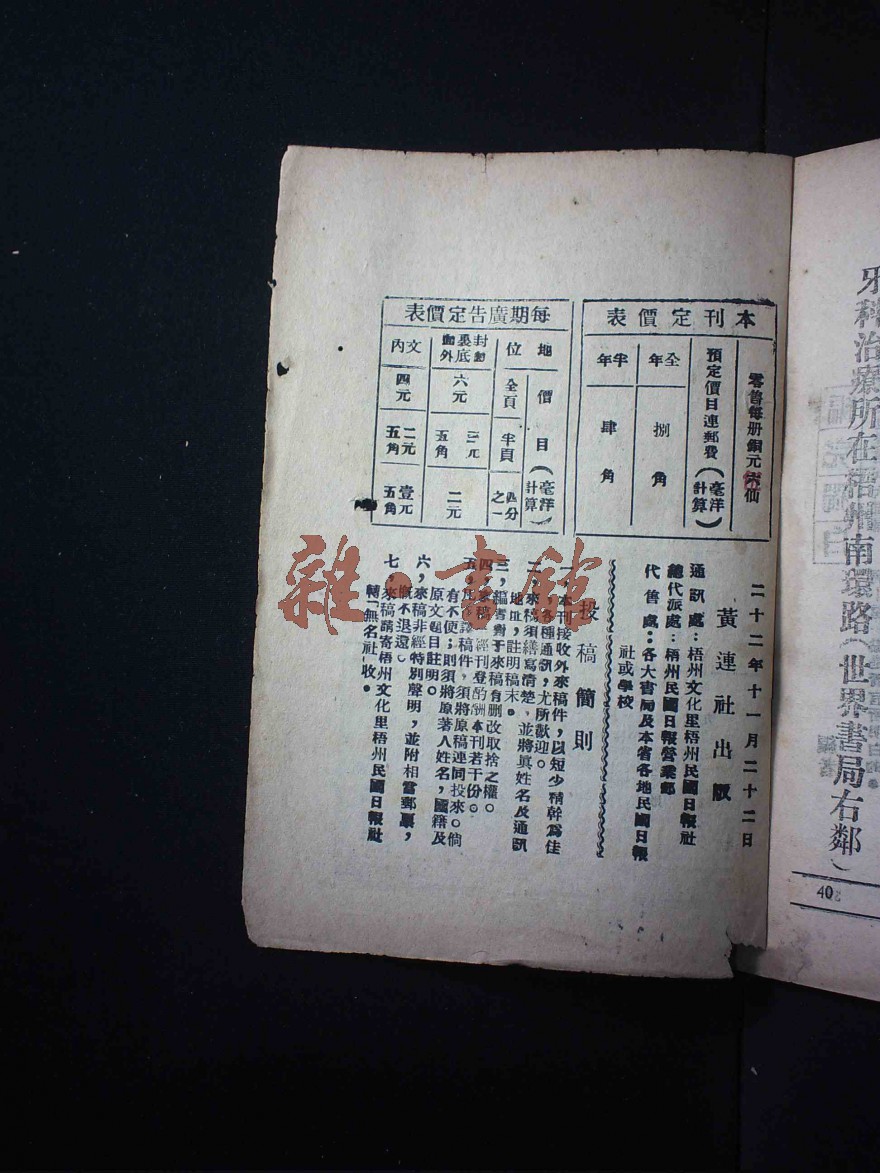 牙科治療所在梧州南環路(世界書局右鄰)
40
本刊定價表
零售每册銅元 仙
預定價目連郵費(毫洋計算)
全年 捌角
半年 肆角
每期廣告定價表
地位 價目(毫洋計算)
全頁 半頁 四分之一
封面裏底面外 六元 三元五角 二元
文內 四元 二元五角 壹元五角
二十二年十一月二十二日
黃連社出版
通訊處:梧州文化里梧州民國日報社
總代派處:梧州民國日報營業部
代售處:各大書局及本省各地民國日報
社或學校
投稿簡則
一,本刊接收外來稿件,以短少精幹爲佳
,各種通訊,尤所歡迎。
二,來稿須繕寫清楚、並將眞姓名及通訊
地址,註明稿末。
三,編者對于來稿有删改取捨之權。
四,來稿一經刊登酌酬本刊若干份。
五,凡 譯稿件,須將原稿連同投來。倘
有不便;則須將原著人姓名,國籍及
原文題目註明。
六,來稿非經特別聲明,並附相當郵票,
概不退還。
七,來稿請寄梧州文化里梧州民國日報社
轉「無名社」收。
雜·書館